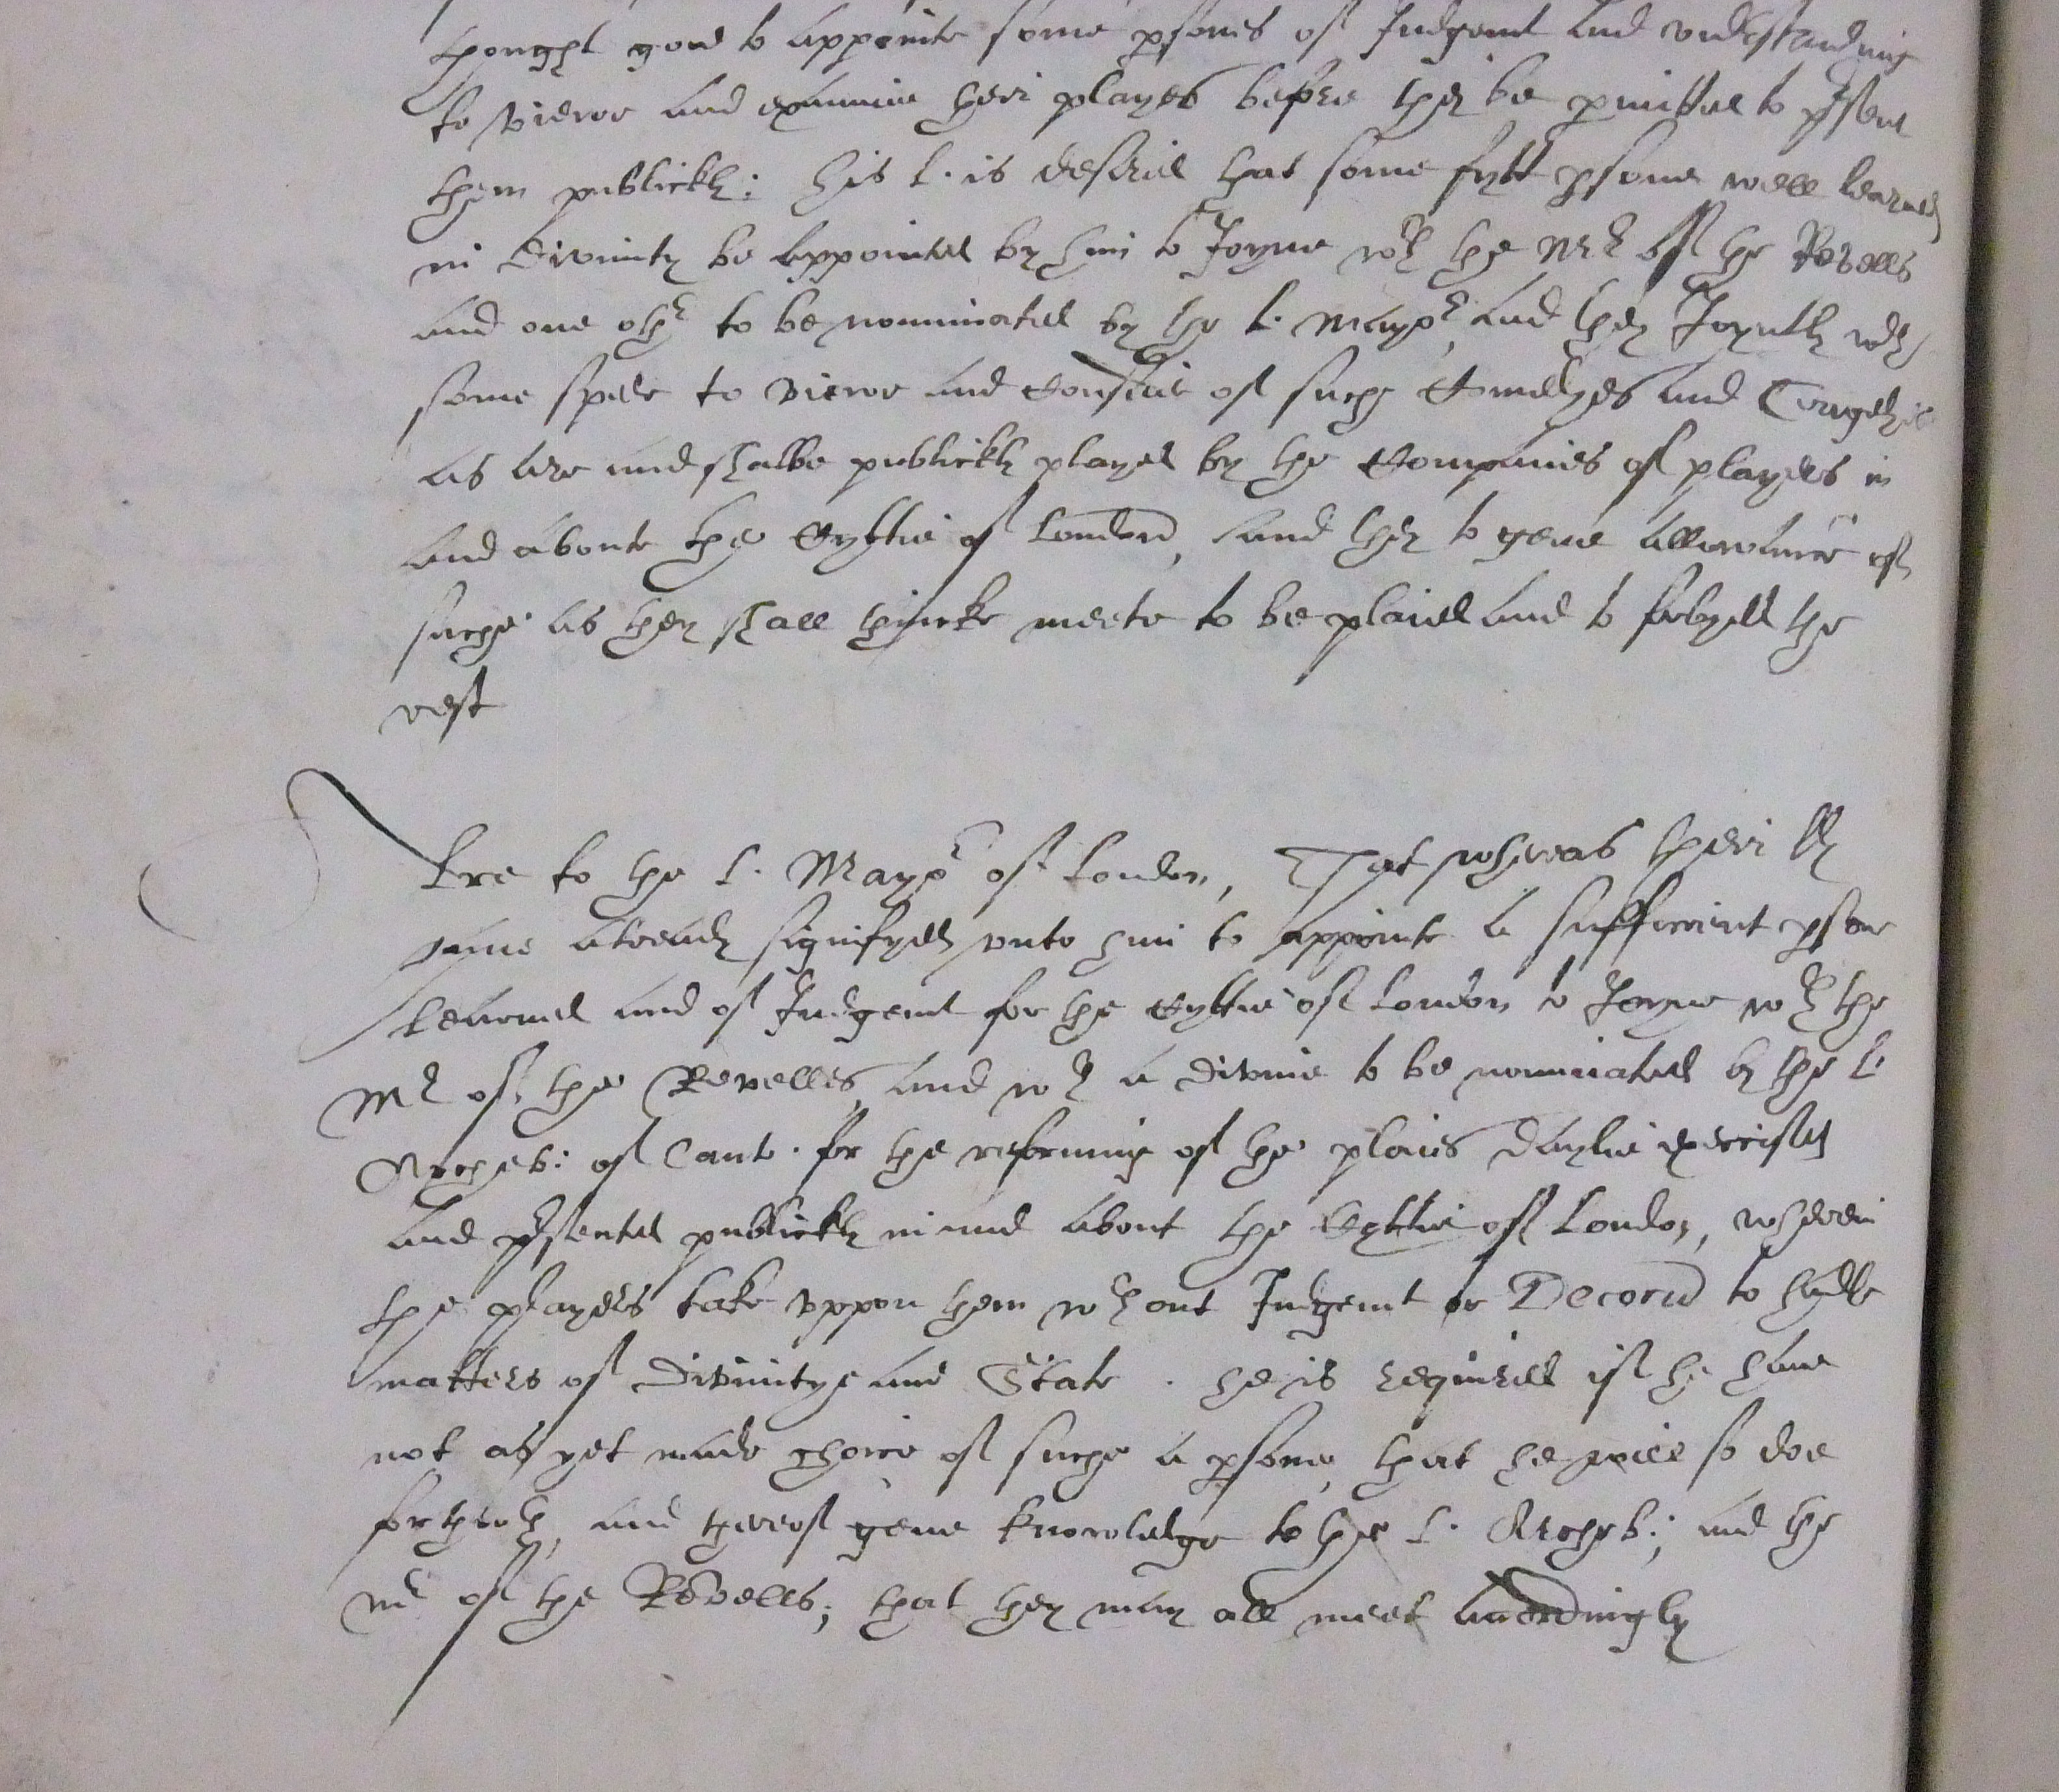 thought good to appointe some psones of Judgemt and vnderstanding
to viewe and examine their playes before they be pmitted to psent
them publickly: his L. is desired that some fytt psone well learned
in divinity be appointed by him to Joyne wth the Mr of the Revells
and one othr to be nominated by the L. Mayor, and they Joyntly wth
some spede to viewe and consider of suche Comedyes and Tragedyes
as are and shalbe publickly played by the Companies of players in
and aboute the Cyttie of London, and they to geve allowance of
suche as they shall thincke meete to be plaied and to forbydd the
rest
Lre to the L. Mayor of London, That whereas their LLs
have already signifyed vnto him to appointe a sufficient psone
learned and of Judgemt for the Cyttie of London to Joyne wth the
Mr of the Revelles and wth a divine to be nominated by the L.
Archeb: of Cant. for the reforming of the plaies daylie exercised
and psented publickly in and about the Cyttie of London, wherein
the players take vppon them wthout Judgemt or Decorū to hādle
matters of Divinitye and State. he is required if he have
not as yet made choice of suche a psone, that he will so doe
forthwth, and thereof geve knowledge to the L. Archeb:, and the
Mr of the Revells, that they may all meet accordingly